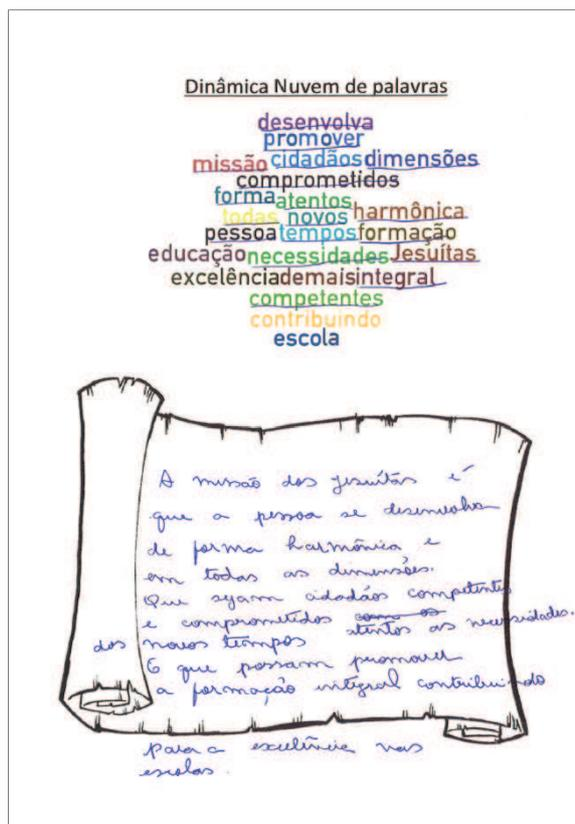 Dinâmica Nuvem de palavras
desenvolva
promover
missão cidadãos dimensões
comprometidos
forma atentos
todas novos harmônica
pessoa tempos formação
educação necessidades Jesuítas
excelência demais integral
competentes
contribuindo
escola
A missão dos jesuítas é
que a pessoa se desenvolva
de forma harmônica e
em todas as dimensões.
Que sejam cidadãos competentes
e comprometidos com os atentos as necessidades.
dos novos tempos
E que possam promover
a formação integral contribuindo
para a excelência nas
escolas.